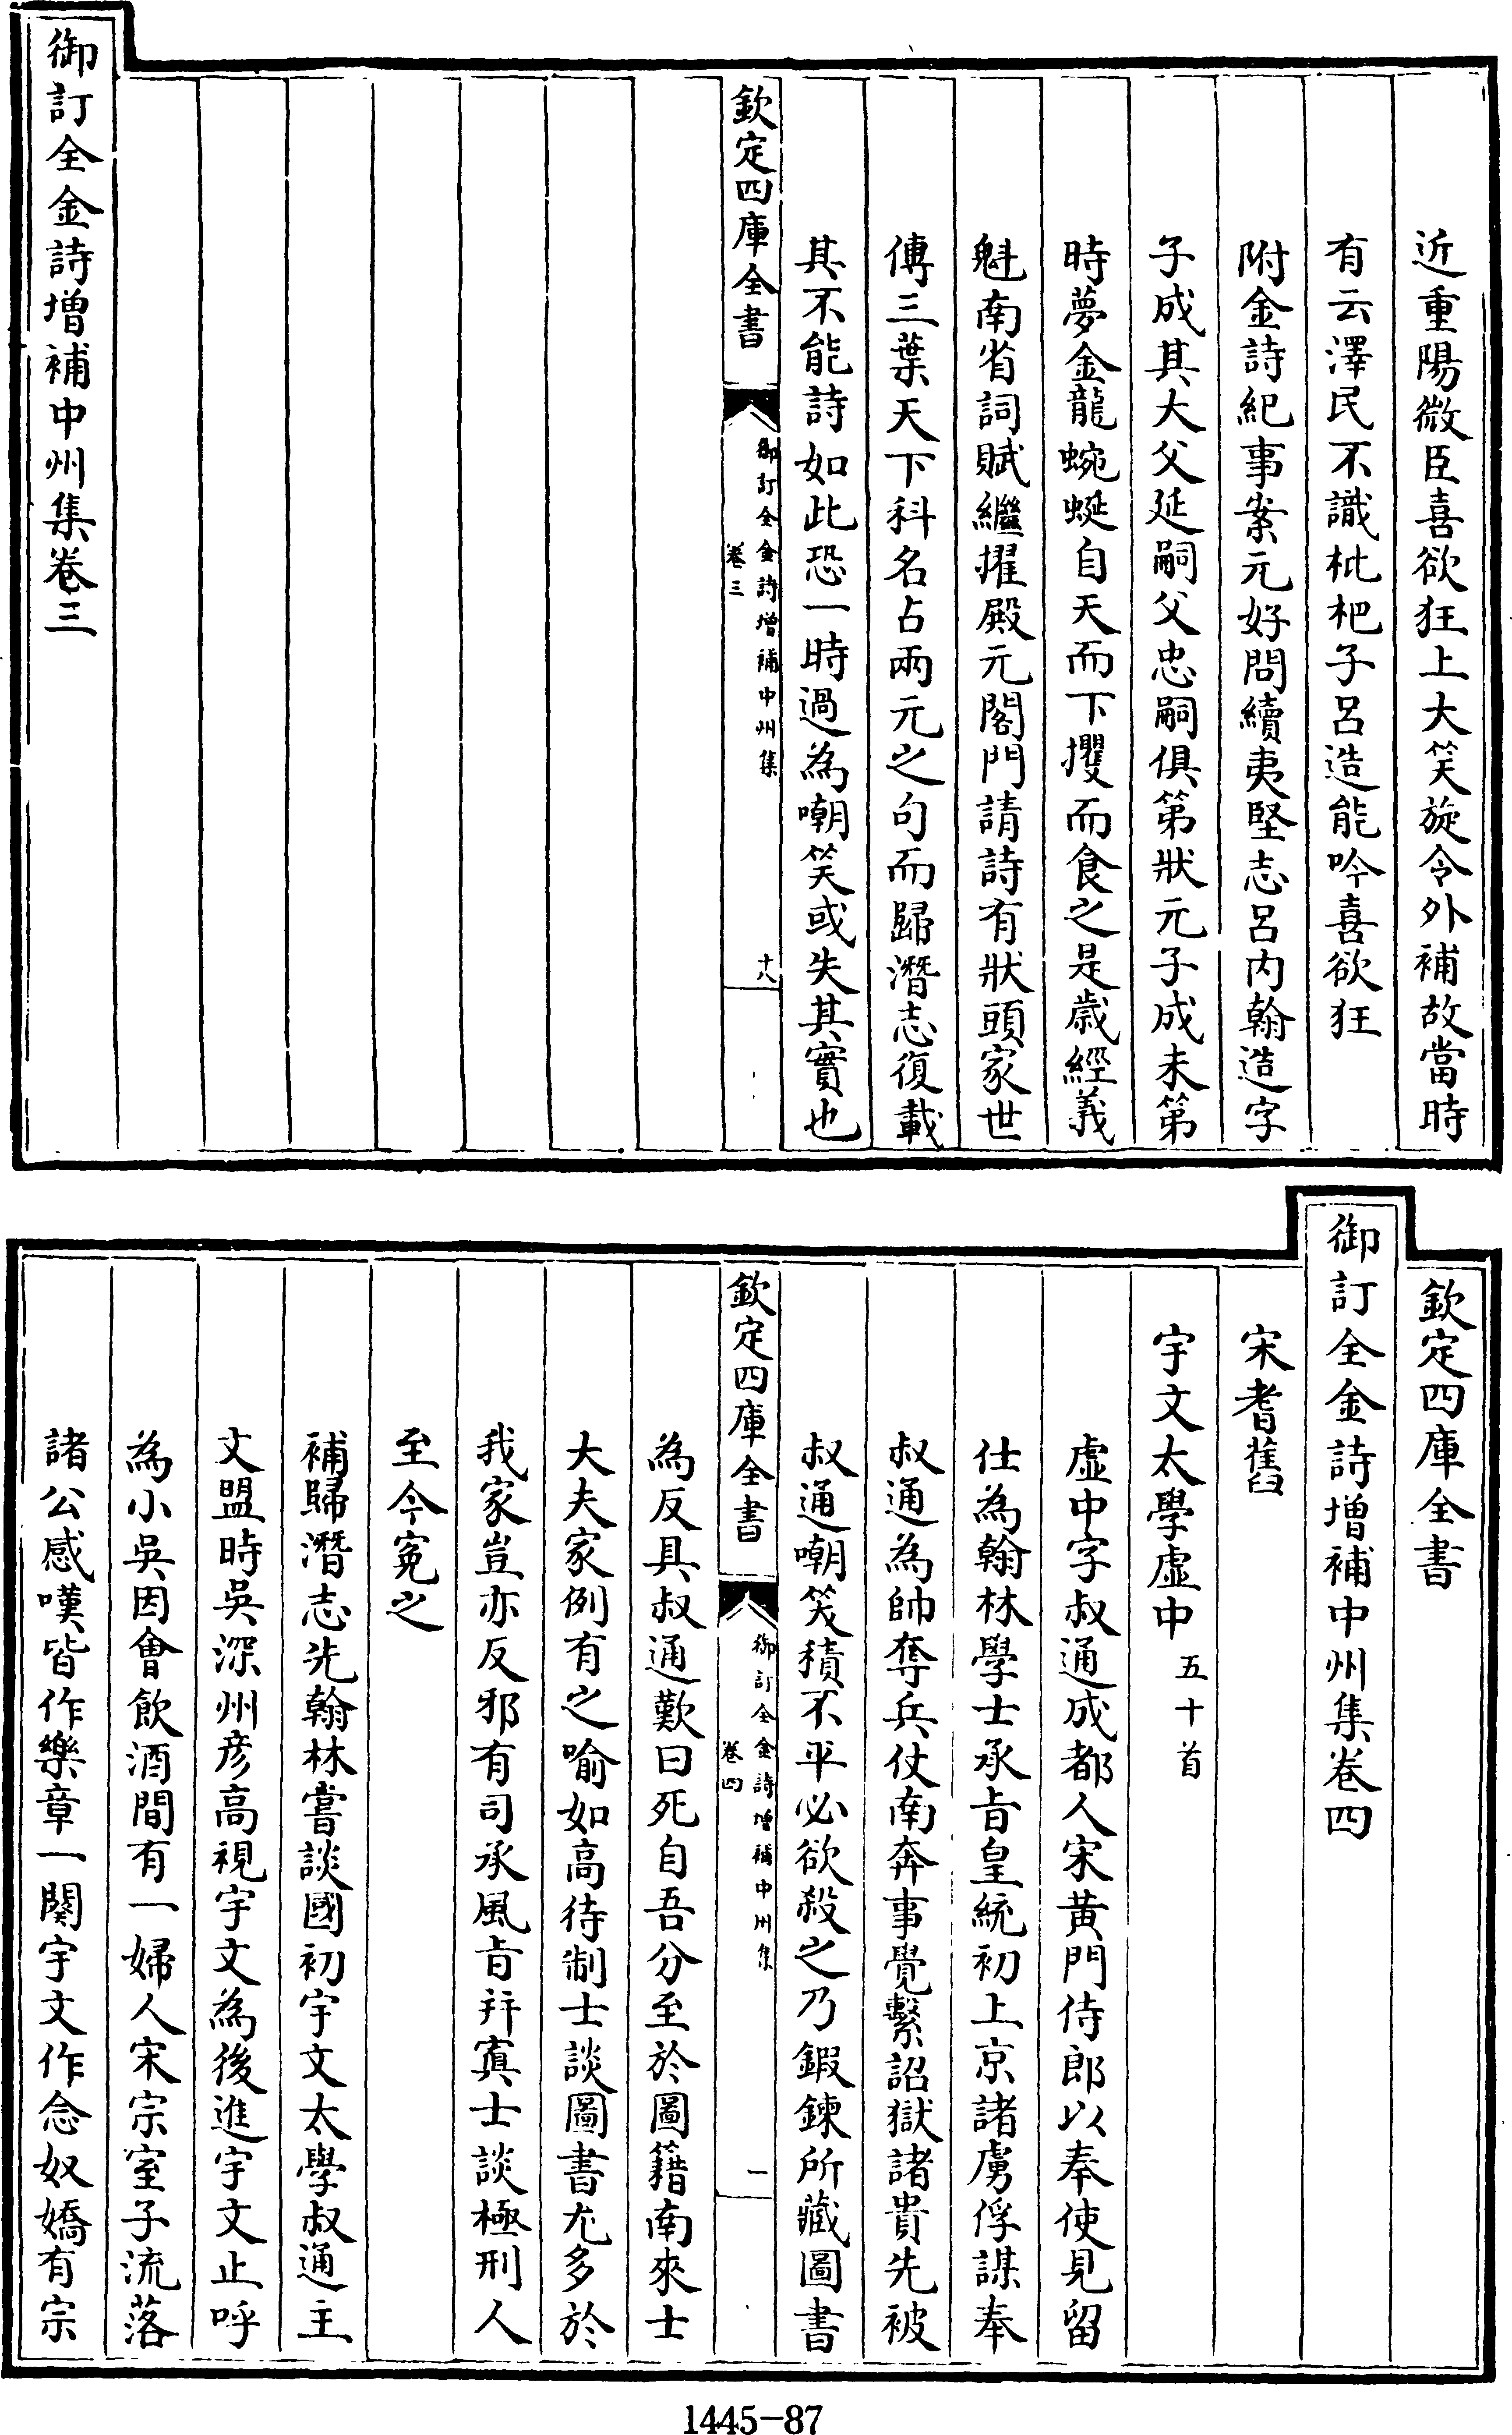 近重陽微臣喜欲狂上大笑旋令外補故當時
有云澤民不識枇杷子呂造能吟喜欲狂
附金詩紀事案元好問續夷堅志呂內翰造字
子成其大父延嗣父忠嗣俱第狀元子成未第
時夢金龍蜿蜒自天而下攫而食之是歲經義
魁南省詞賦繼擢殿元閣門請詩有狀頭家世
傳三葉天下科名占兩元之句而歸潛志復載
其不能詩如此恐一時過為嘲笑或失其實也
欽定四庫全書
御訂全金詩增補中州集
卷三
十八
御訂全金詩增補中州集卷三
欽定四庫全書
御訂全金詩增補中州集卷四
宋耆舊
宇文太學虛中 五十首
虛中字叔通成都人宋黃門侍郎以奉使見留
仕為翰林學士承旨皇統初上京諸虜俘謀奉
叔通為帥奪兵仗南奔事覺繫詔獄諸貴先被
叔通嘲笑積不平必欲殺之乃鍜鍊所藏圖書
欽定四庫全書
御訂全金詩增補中州集
卷四
一
為反具叔通歎曰死自吾分至於圖籍南來士
大夫家例有之喻如高待制士談圖書尤多於
我家豈亦反邪有司承風旨幷寘士談極刑人
至今冤之
補歸潛志先翰林嘗談國初宇文太學叔通主
文盟時吳深州彥高視宇文為後進宇文止呼
為小吳因會飲酒間有一婦人宋宗室子流落
諸公感嘆皆作樂章一闋宇文作念奴嬌有宗
1445-87